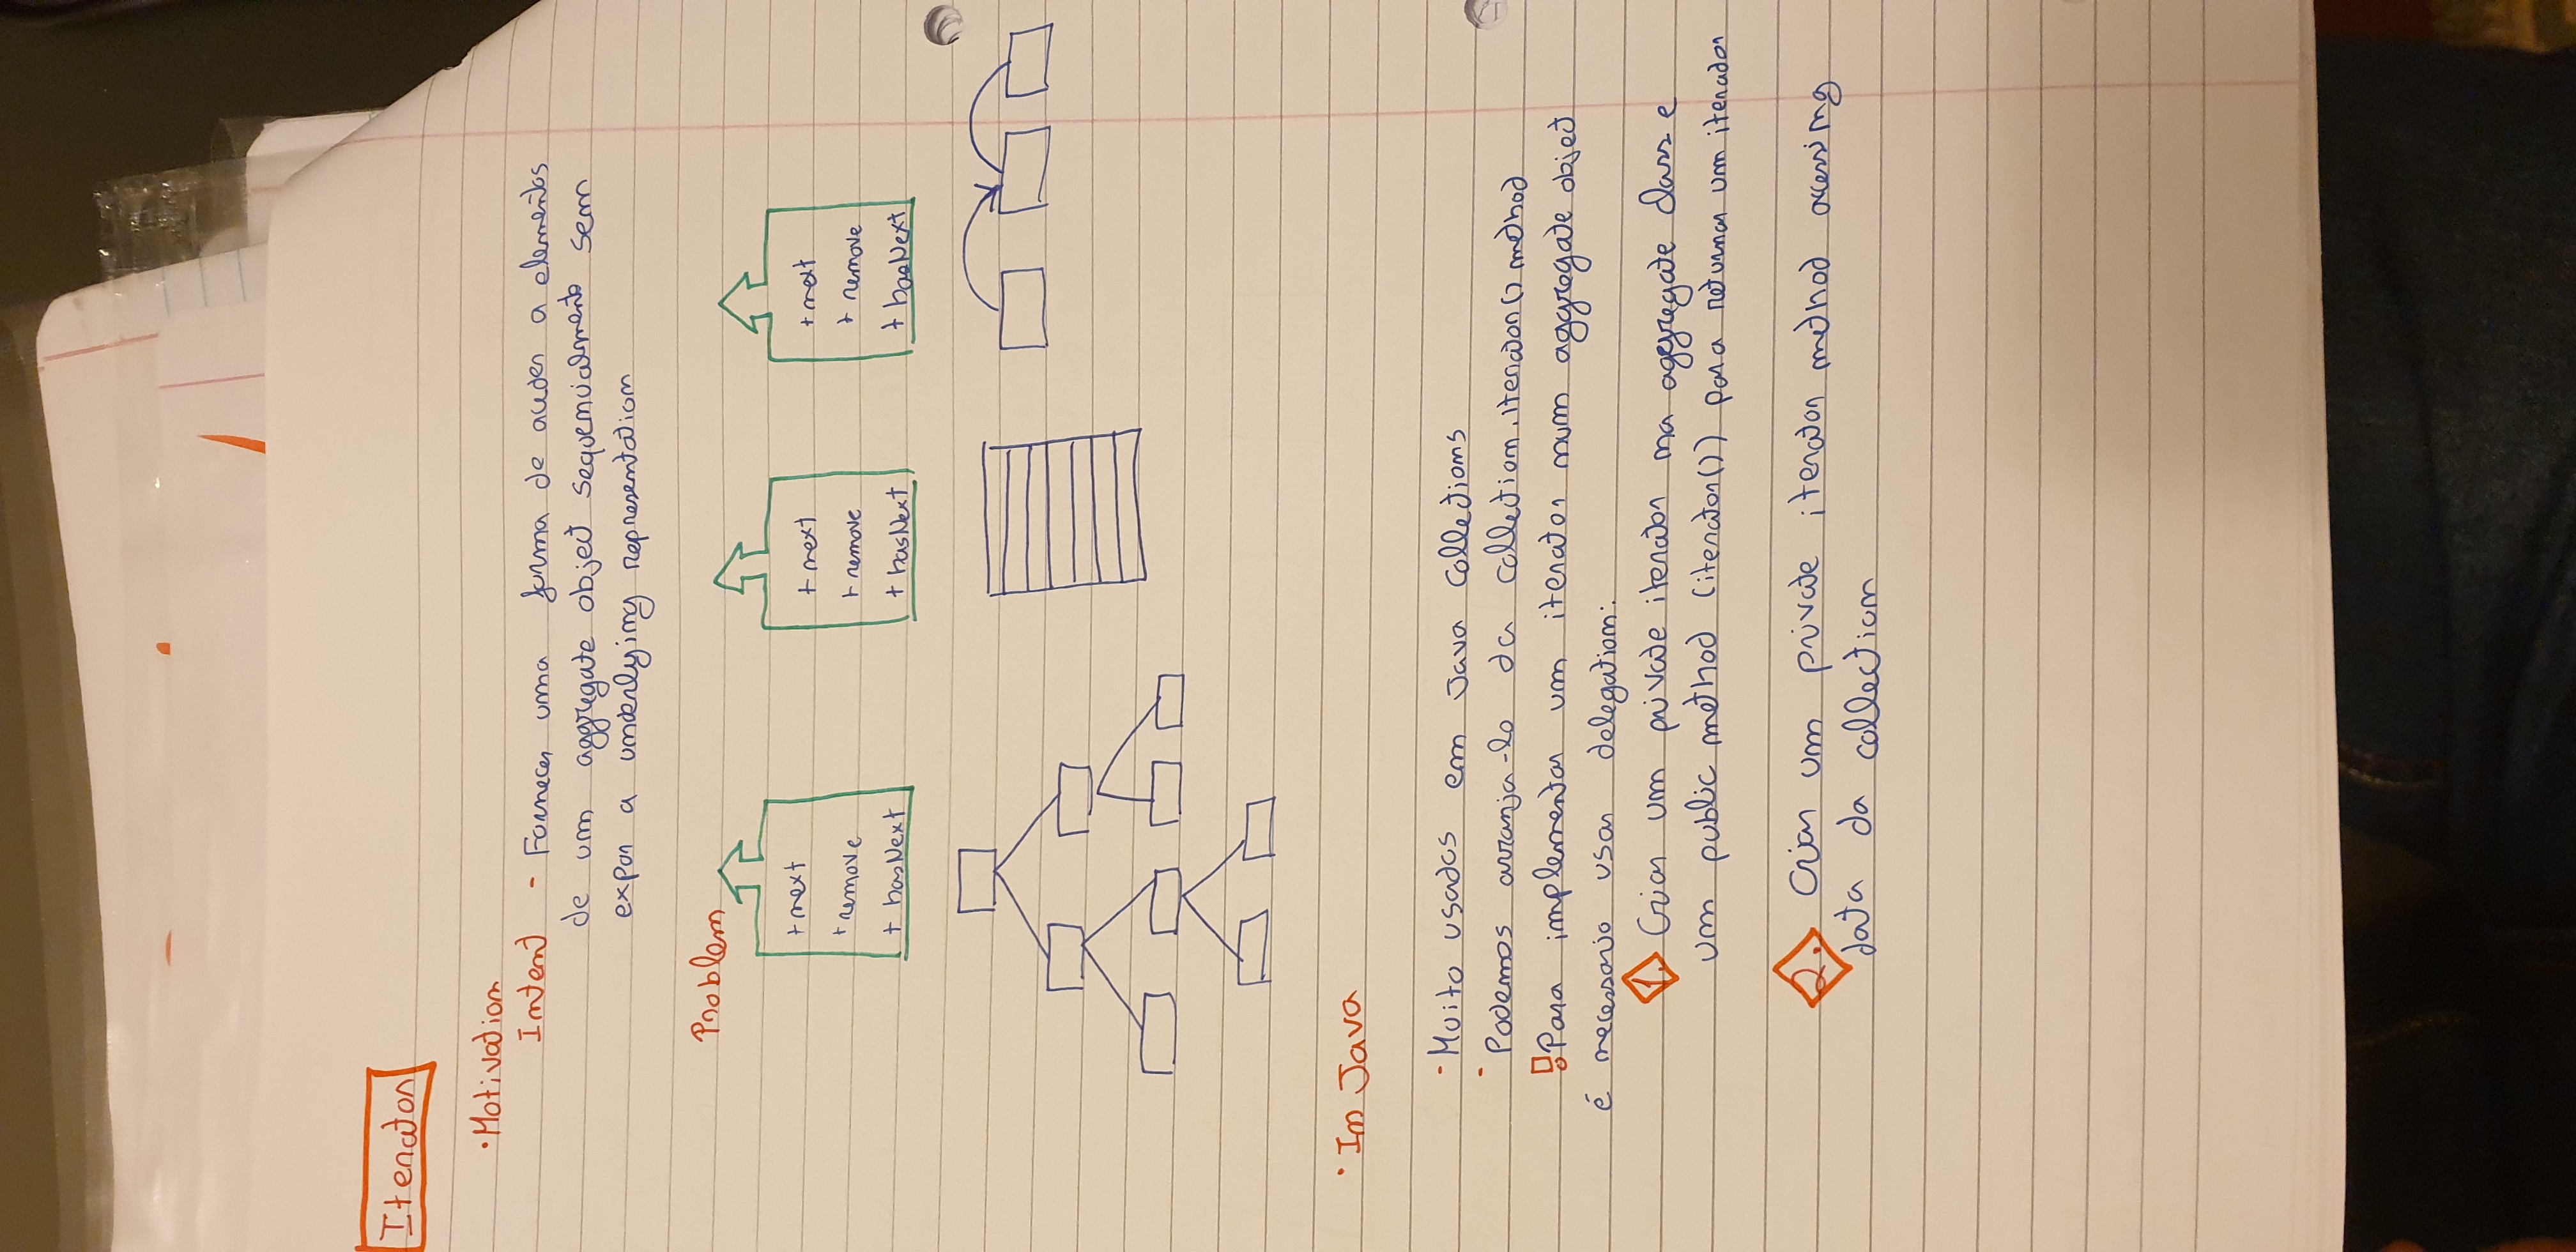 Iterator
• Motivation
Intent - Fornecer uma forma de aceder a elementos
de um aggregate object sequencialmente sem
expor a underlying representation
Problem
+ next
+ remove
+ hasNext
+ next
+ remove
+ hasNext
+ next
+ remove
+ hasNext
• In Java
- Muito usados em Java Collections
- Podemos arranja-lo da collection.iterator() method
! Para implementar um iterator num aggregate object
é necessario usar delegation:
1. Criar um private iterator na aggregate class e
um public method (iterator()) para retornar um iterador
2. Criar um private iterator method acessing
data da collection